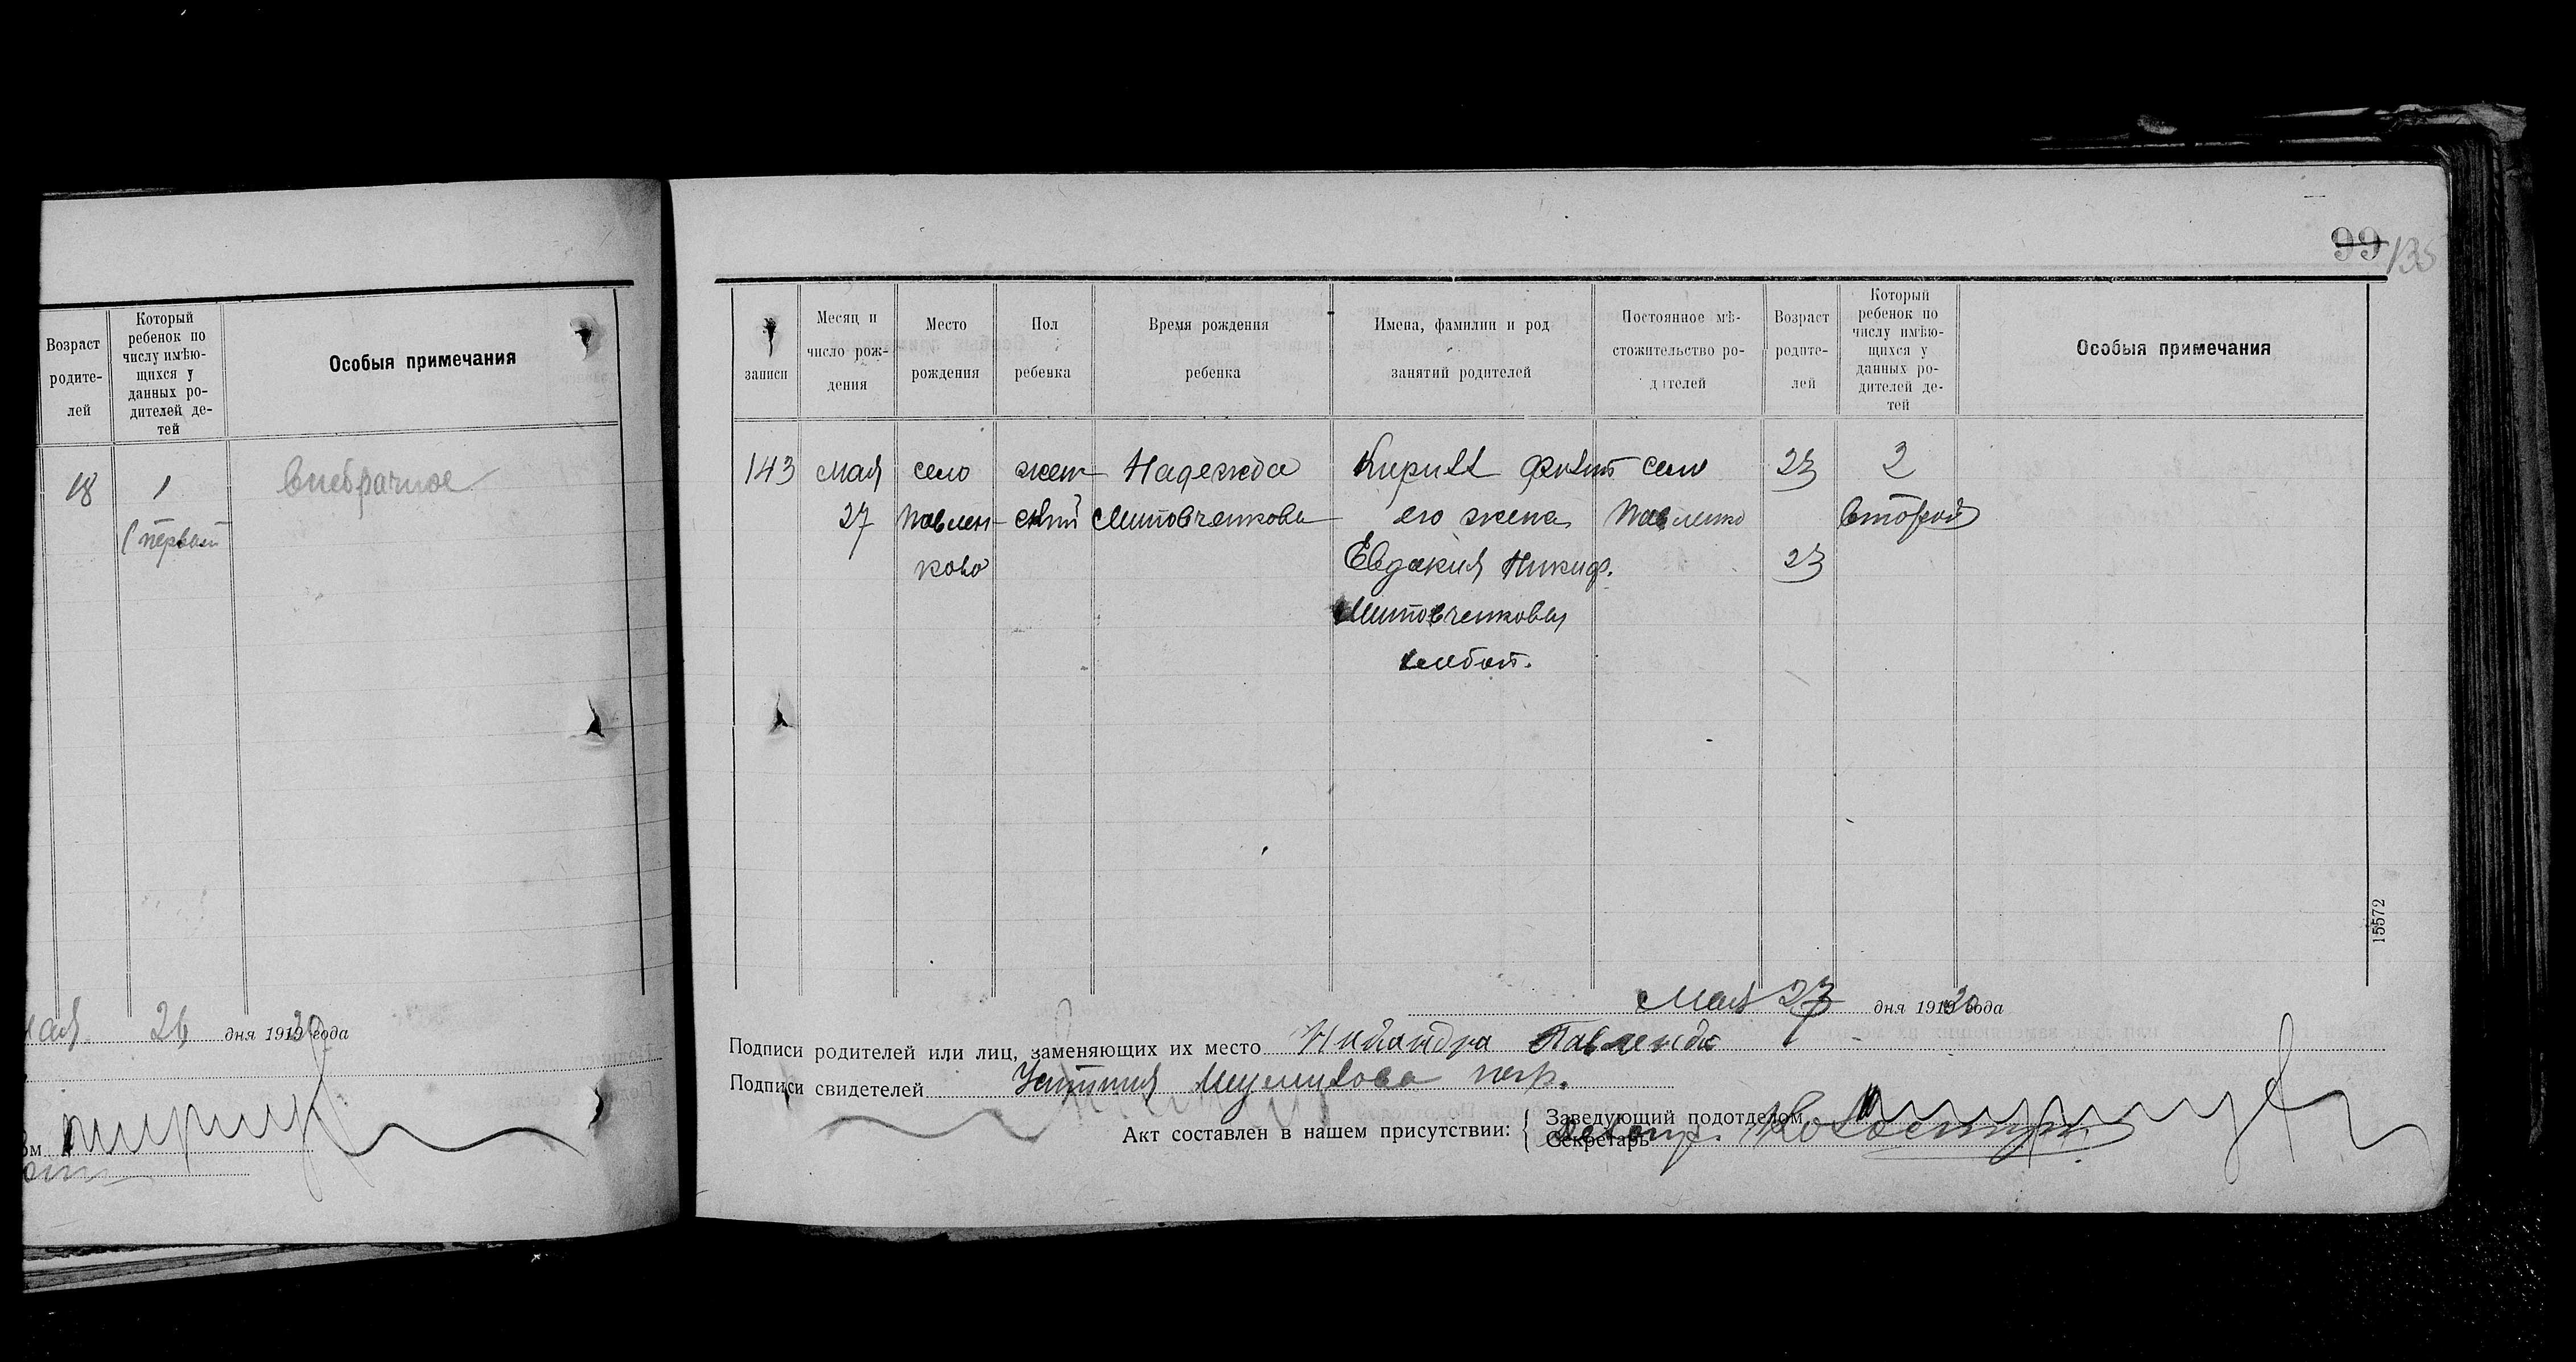 Возраст родите- лей
Который ребенок по числу имѣю- щихся у данных ро- дителей де- тей
Особыя примечания
18
1
внебрачное
(первый
мая 26 дня 1919 20 года
99 135
записи
Месяц и число рож- дения
Место рождения
Пол ребенка
Время рождения ребенка
Имена, фамилии и род занятий родителей
Постоянное мѣ- стожительство ро- дителей
Возраст родите- лей
Который ребенок по числу имѣю- щихся у данных ро- дителей де- тей
Особыя примечания
143 мая село жен- Надежда Кирилл село 23 2
27 Павлен- ский Литовченкова его жена Павленко второй
ково Евдокия Никиф. 23
Литовченковы
хлебоп.
Мая 27 дня 1919 20 года
Подписи родителей или лиц, заменяющих их место
Подписи свидетелей Устиния
Акт составлен в нашем присутствии: { Заведующий подотделом
Секретарь
15572